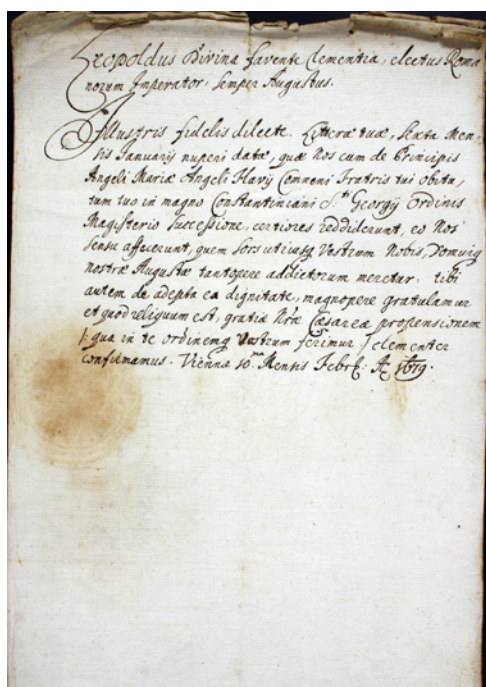 Leopoldus Divina favente Clementia, electus Roma
norum Imperator, semper Augustus.
Illustris fidelis dilecte. Litteræ tuæ, sexta Men-
sis Januarij nuperi datæ, quæ Nos cum de Principis
Angeli Mariæ Angeli Flavij Comneni Fratris tui obitu,
tum tuo in magno Constantiniani S. Georgij Ordinis
Magisterio successione, certiores reddiderunt, eo Nos
sensu affecerunt, quem sors utriusq Vestrum Nobis, Domuiq
nostræ Augustæ tantopere addictorum meretur. tibi
autem de adepta ea dignitate, magnopere gratulamur
et quod reliquum est, gratiæ Nræ Cæsareæ propensionem
/: qua in te ordinemq Vestrum ferimur :/ clementer
confirmamus. Viennæ 10 Mensis Febr: Aº 1679.